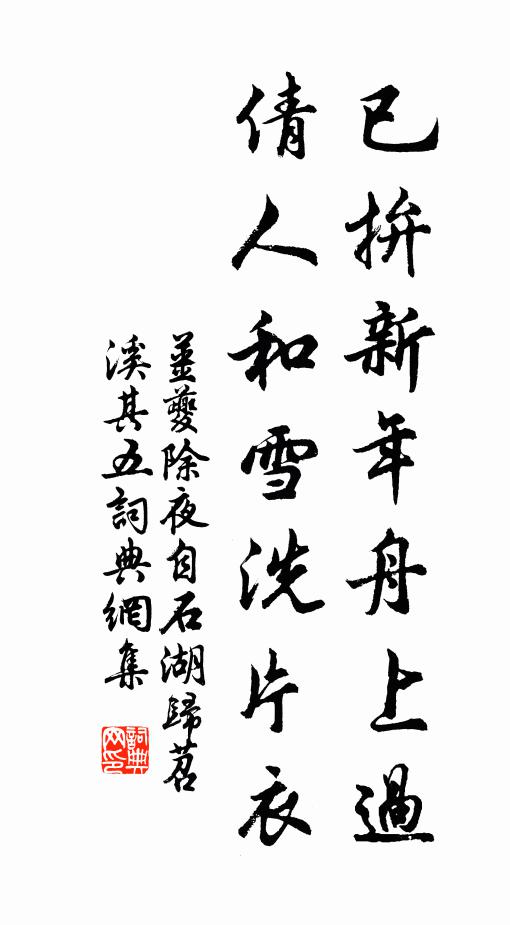 已拚新年舟上過
倩人和雪洗片衣
姜夔除夜自石湖歸苕
溪其五詞典網集
詞典
网印